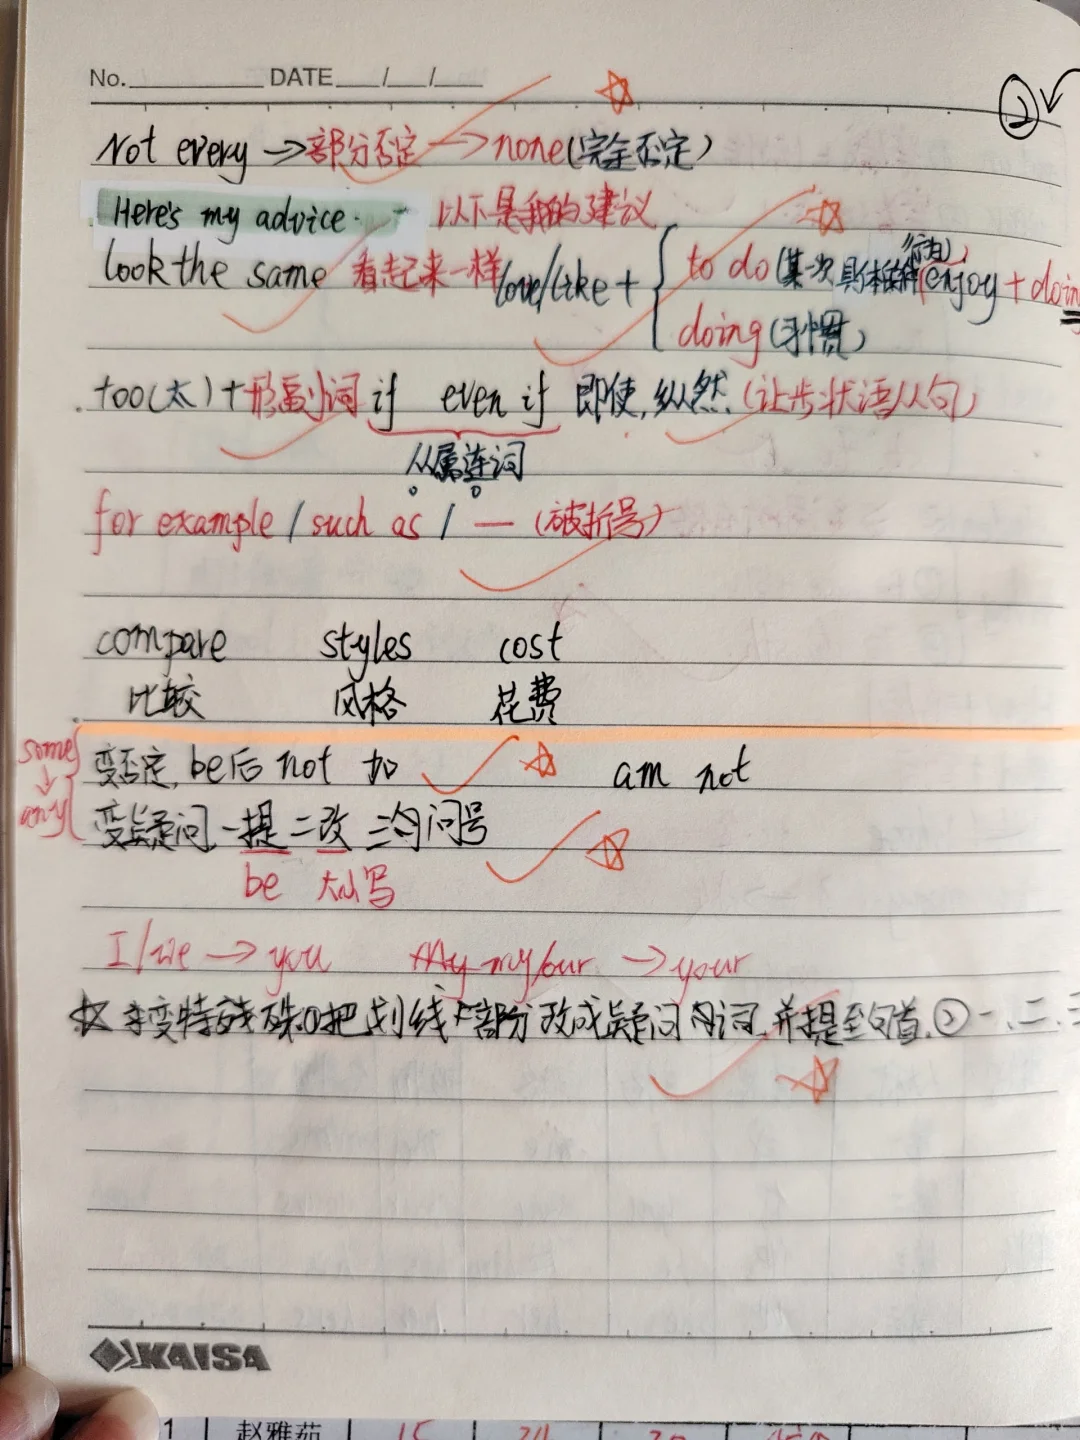 No. DATE / /
②
Not every → 部分否定 → none(完全否定)
Here's my advice. 以下是我的建议
look the same 看起来一样 love/like + { to do (某一次具体 行为) enjoy + doing
doing (习惯)
too(太)+形副词 if even if 即使,纵然.(让步状语从句)
从属连词
for example / such as / — (破折号)
compare styles cost
比较 风格 花费
some → any
变否定, be后 not 加 am not
变疑问, 一提 二改 三勾问号
be 大小写
I/we → you my/our → your
☆ 变特殊.①把划线部分改成疑问词.并提至句首.②一、二、三
KAISA
1 赵雅茹 15 24